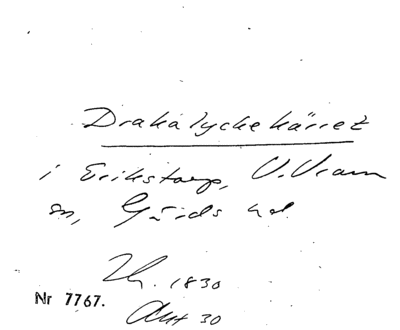 Drakalyckekärret
i Erikstorp, V. Vram
sn, Gärds hd.
Th. 1830
Akt 30
Nr 7767.